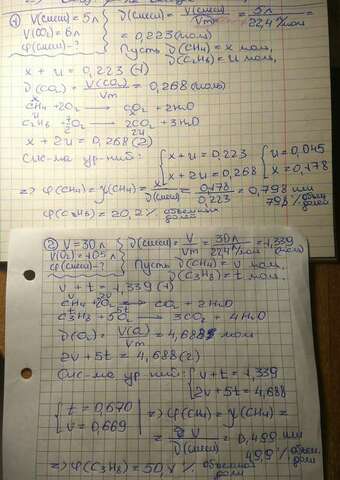 ① V(смеси) = 5л
V(CO₂) = 6л
φ(смеси) - ?
ν(смеси) = V(смеси)/Vm = 5л/22,4 л/моль
= 0,223 (моль)
Пусть ν(CH₄) = x моль,
ν(C₂H₆) = u моль,
x + u = 0,223 (1)
ν(CO₂) = V(CO₂)/Vm = 0,268 (моль)
CH₄ + 2O₂ → CO₂ + 2H₂O
C₂H₆ + 7/2 O₂ → 2CO₂ + 3H₂O
x + 2u = 0,268 (2)
Сис-ма ур-ний: { x + u = 0,223 { u = 0,045
x + 2u = 0,268 x = 0,178
⇒ φ(CH₄) = χ(CH₄) = x/ν(смеси) = 0,178/0,223 = 0,798 или
79,8% объемн. доли
φ(C₂H₆) = 20,2% объемн. доли
② V = 30л
V(O₂) = 105л
φ(смеси) - ?
ν(смеси) = V/Vm = 30л/22,4 л/моль = 1,339 (моль)
Пусть ν(CH₄) = v моль,
ν(C₃H₈) = t моль.
v + t = 1,339 (1)
CH₄ + 2O₂ → CO₂ + 2H₂O
C₃H₈ + 5O₂ → 3CO₂ + 4H₂O
ν(O₂) = V(O₂)/Vm = 4,688 моль
2v + 5t = 4,688 (2)
Сис-ма ур-ний: { v + t = 1,339
2v + 5t = 4,688
{ t = 0,670
v = 0,669
⇒ φ(CH₄) = χ(CH₄) =
= v/ν(смеси) = 0,499 или
49,9% объемн. доли
⇒ φ(C₃H₈) = 50,1% объемной доли